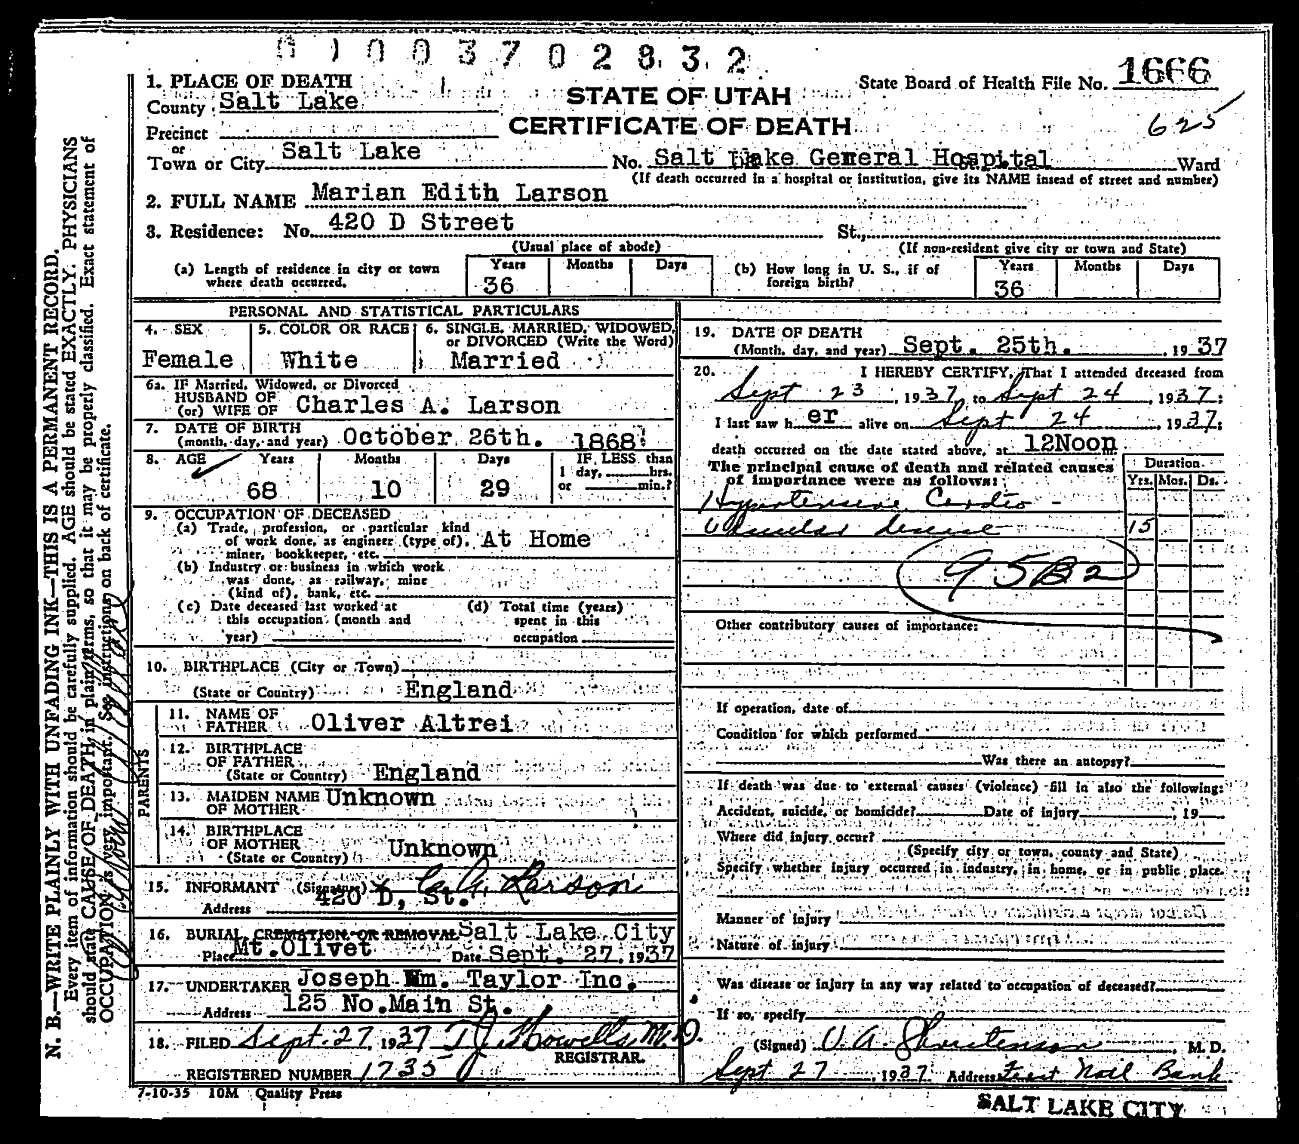 0100370283 2
1. PLACE OF DEATH
State Board of Health File No. 1666
County Salt Lake
STATE OF UTAH
CERTIFICATE OF DEATH
625
Precinct
or
Town or City Salt Lake No. Salt Lake General Hospital Ward
(If death occurred in a hospital or institution, give its NAME insead of street and number)
2. FULL NAME Marian Edith Larson
3. Residence: No. 420 D Street St.,
(Usual place of abode) (If non-resident give city or town and State)
(a) Length of residence in city or town where death occurred. Years 36 Months Days
(b) How long in U. S., if of foreign birth? Years 36 Months Days
PERSONAL AND STATISTICAL PARTICULARS
4. SEX Female
5. COLOR OR RACE White
6. SINGLE, MARRIED, WIDOWED, or DIVORCED (Write the Word) Married
6a. IF Married, Widowed, or Divorced
HUSBAND OF
(or) WIFE OF Charles A. Larson
7. DATE OF BIRTH
(month, day, and year) October 26th. 1868
8. AGE Years 68 Months 10 Days 29 IF LESS than
1 day, hrs.
or min.?
9. OCCUPATION OF DECEASED
(a) Trade, profession, or particular kind
of work done, as engineer (type of), At Home
miner, bookkeeper, etc.
(b) Industry or business in which work
was done, as railway, mine
(kind of), bank, etc.
(c) Date deceased last worked at
this occupation (month and
year)
(d) Total time (years)
spent in this
occupation
10. BIRTHPLACE (City or Town)
(State or Country) England
PARENTS
11. NAME OF
FATHER Oliver Altrei
12. BIRTHPLACE
OF FATHER
(State or Country) England
13. MAIDEN NAME Unknown
OF MOTHER
14. BIRTHPLACE
OF MOTHER
(State or Country) Unknown
15. INFORMANT (Signature) C. A. Larson
Address 420 D, St.
16. BURIAL CREMATION OR REMOVAL Salt Lake City
Place Mt. Olivet Date Sept. 27, 1937
17. UNDERTAKER Joseph Wm. Taylor Inc.
Address 125 No. Main St.
18. FILED Sept. 27 1937 T. J. Howells, M.D.
REGISTRAR.
REGISTERED NUMBER 1735
7-10-35 10M Quality Press
19. DATE OF DEATH
(Month, day, and year) Sept. 25th. , 1937
20. I HEREBY CERTIFY, That I attended deceased from
Sept 23, 1937, to Sept 24, 1937:
I last saw h er alive on Sept 24, 1937;
death occurred on the date stated above, at 12Noon
The principal cause of death and related causes
of importance were as follows:
Duration
Yrs. Mos. Ds.
Hypertensive Cardio-
Vascular disease 15
95B2
Other contributory causes of importance:
If operation, date of
Condition for which performed
Was there an autopsy?
If death was due to external causes (violence) fill in also the following:
Accident, suicide, or homicide? Date of injury , 19
Where did injury occur?
(Specify city or town, county and State)
Specify whether injury occurred in industry, in home, or in public place.
Manner of injury
Nature of injury
Was disease or injury in any way related to occupation of deceased?
If so, specify
(Signed) V. A. Christenson, M. D.
Sept 27, 1937 Address First Natl Bank
SALT LAKE CITY
N. B.—WRITE PLAINLY WITH UNFADING INK—THIS IS A PERMANENT RECORD.
Every item of information should be carefully supplied. AGE should be stated EXACTLY. PHYSICIANS
should state CAUSE OF DEATH in plain terms, so that it may be properly classified. Exact statement of
OCCUPATION is very important. See instructions on back of certificate.